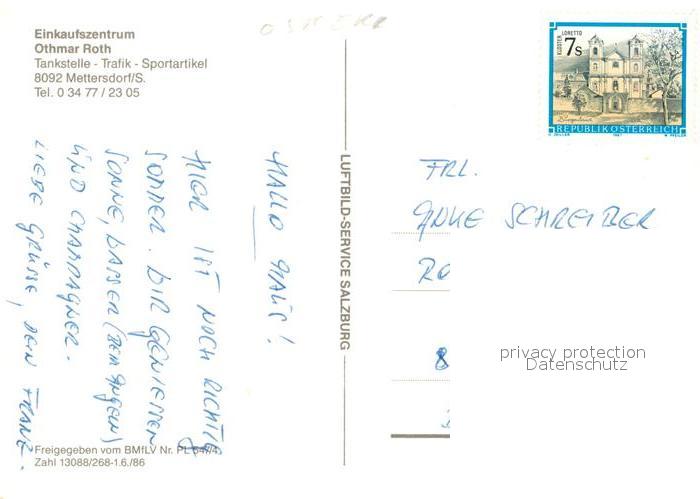 Einkaufszentrum
Othmar Roth
Tankstelle - Trafik - Sportartikel
8092 Mettersdorf/S.
Tel. 0 34 77 / 23 05
HALLO MAUS!
HIER IST NOCH RICHTIG
SOMMER. WIR GENIESSEN
SONNE, WASSER (BEIM ANGELN)
UND CHAMPAGNER.
LIEBE GRÜSSE, DEIN FRANZ.
Freigegeben vom BMfLV Nr. PL
Zahl 13088/268-1.6./86
LUFTBILD-SERVICE SALZBURG
KLOSTER LORETTO
7s
Burgenland
REPUBLIK ÖSTERREICH
1987
FRL.
ANKE SCHREIBER
RO
8
privacy protection
Datenschutz